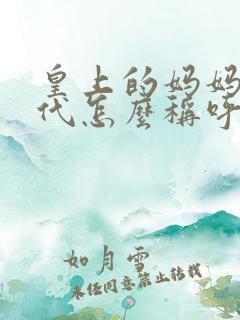 皇上的妈妈
代怎麼稱呼
如月雪
未经同意禁止转载